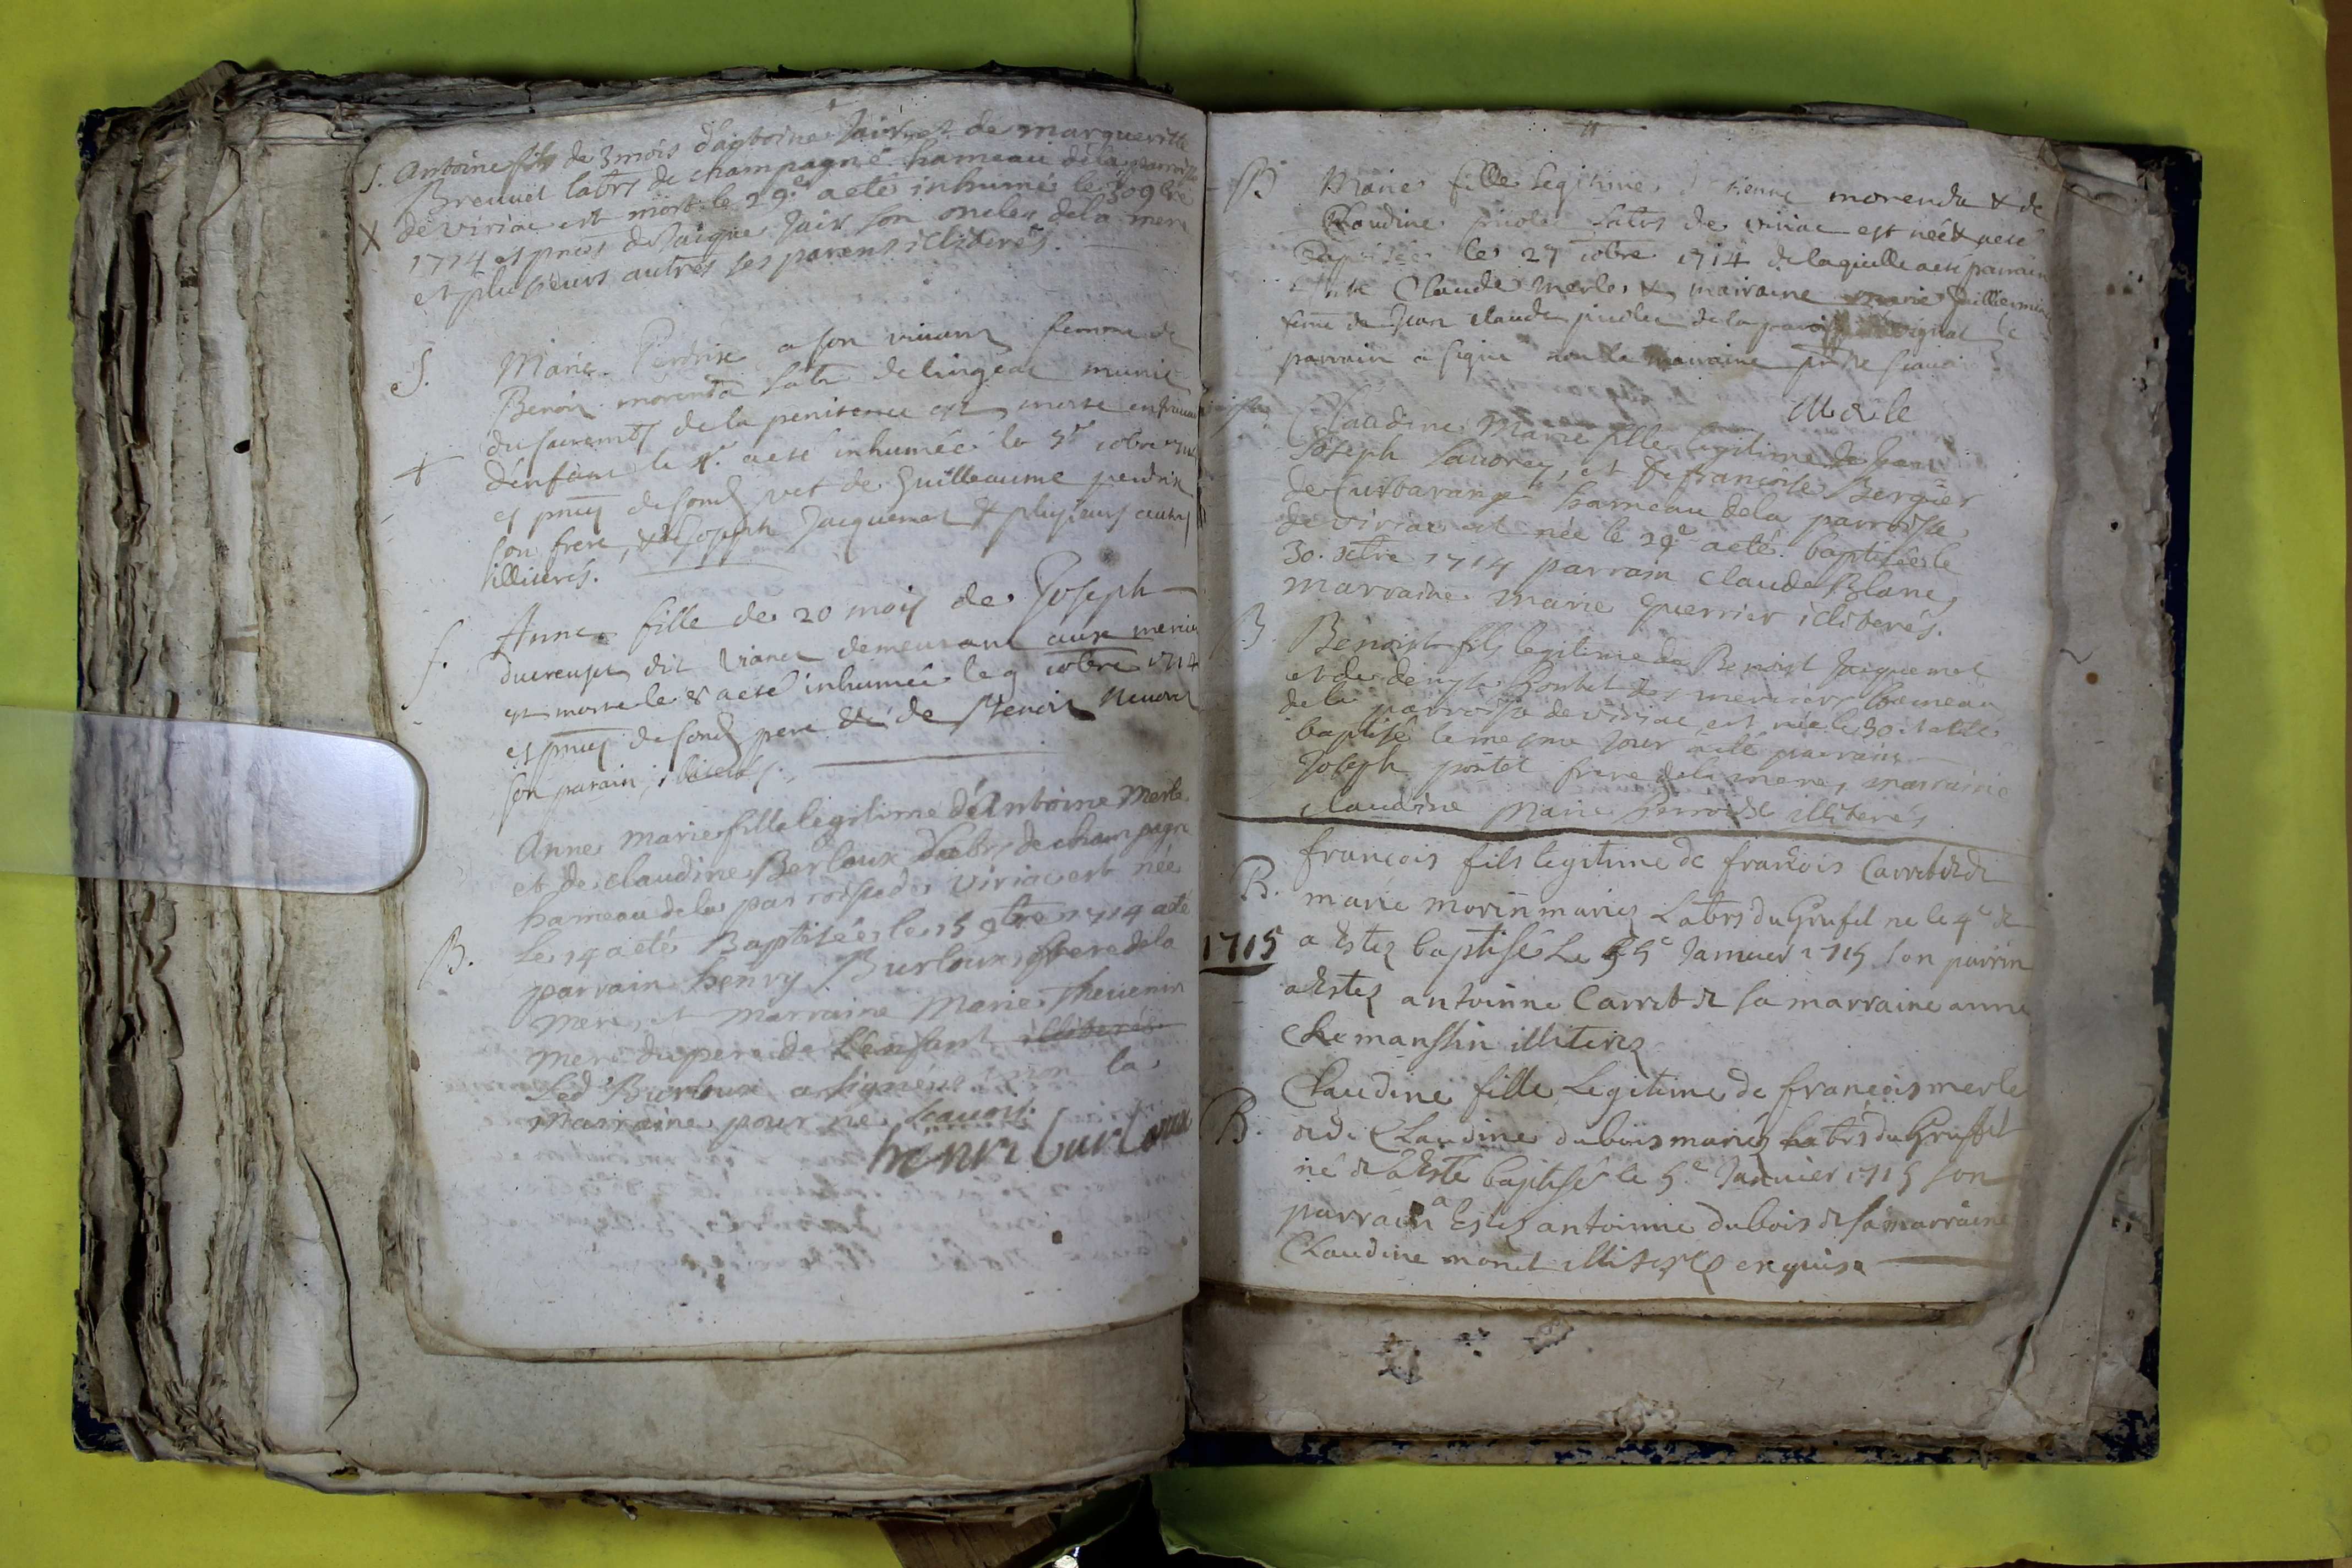 S. Antoine fils de 3 mois d'antoine Jair et de margueritte
Breuvet labrs de champagne hameau dela parroisse
X de viriac est mort le 29e aeté inhumé le 30 9bre
1714 es pnces de Jacque Jair son oncle, dela mere
et plusieurs autres ses parens illiterés.
S. Marie Perdrix a son vivant femme de
Benoit morenda labr de lingeat munie
du sacremt de la penitence est morte en travail
+ d'enfant le 4e aeté inhumée le 5e xobre 1714
es pnces desond vet de Guilleaume perdrix
son frere, & Joseph Jacquemet & plusieurs autres
illiterés.
S. Anne fille de 20 mois de Joseph
ducreuset dit vianet demeurant aux mercier
est morte le 8 aeté inhumée le 9 xobre 1714
es pnces de sond pere & de Benoit
son parain, illiterés.
Anne marie fille legitime d'Antoine Merle
et de claudine Berloux labrs de champagne
hameau dela parroisse de viriac est née
B. le 14 aeté Baptisée le 15 9bre 1714 a eté
parrain henry Burloux frere dela
mere, et marraine Marie Thevenin
mere du pere de l'enfant illiterés
Led Burloux a signé non la
marraine pour ne scavoir.
henri burloux
B Marie fille legitime d'Etienne morenda & de
Claudine picolet labrs de viriac est née & aeté
Baptisée le 27 xobre 1714 de laquelle a eté parrain
Claude merle, & mairaine marie Guillermin
feme de Jean claude picolet de la paroisse vignat le
parrain a signé non la marraine pr ne scavoir
Merle
Claudine Marie fille legitime de Jean
Joseph Sauorey, et de francoise Bergier
de Curbarange hameau dela parroisse
de viriac est née le 29e aeté baptisée le
30. xbre 1714 parrain claude Blanc,
marraine marie Guerrier illiterés.
B. Benoist fils legitime de Benoist Jacquemet
et de denyse pontet des merciers hameau
de la parroisse de viriac est née le 30.
baptisé le mesme jour a eté parrain
Joseph pontet frere dela mere, marraine
claudine Marie illiterés
francois fils legitime de francois Carret & de
B. marie morin mariez Labrs du Gruffel ne le 4e &
1715 a Estez baptisé Le 5e Januier 1715 son parrin
aEstez antoinne Carret & sa marraine anne
Chemanssin illiterez
Claudine fille Legitime de francois merle
B. & de Claudine dubois mariez labrs du Gruffel
né & a Este baptisé le 5e Januier 1715 son
parrain a Estez antoinne dubois & sa marraine
Claudine monet illiterez enquise